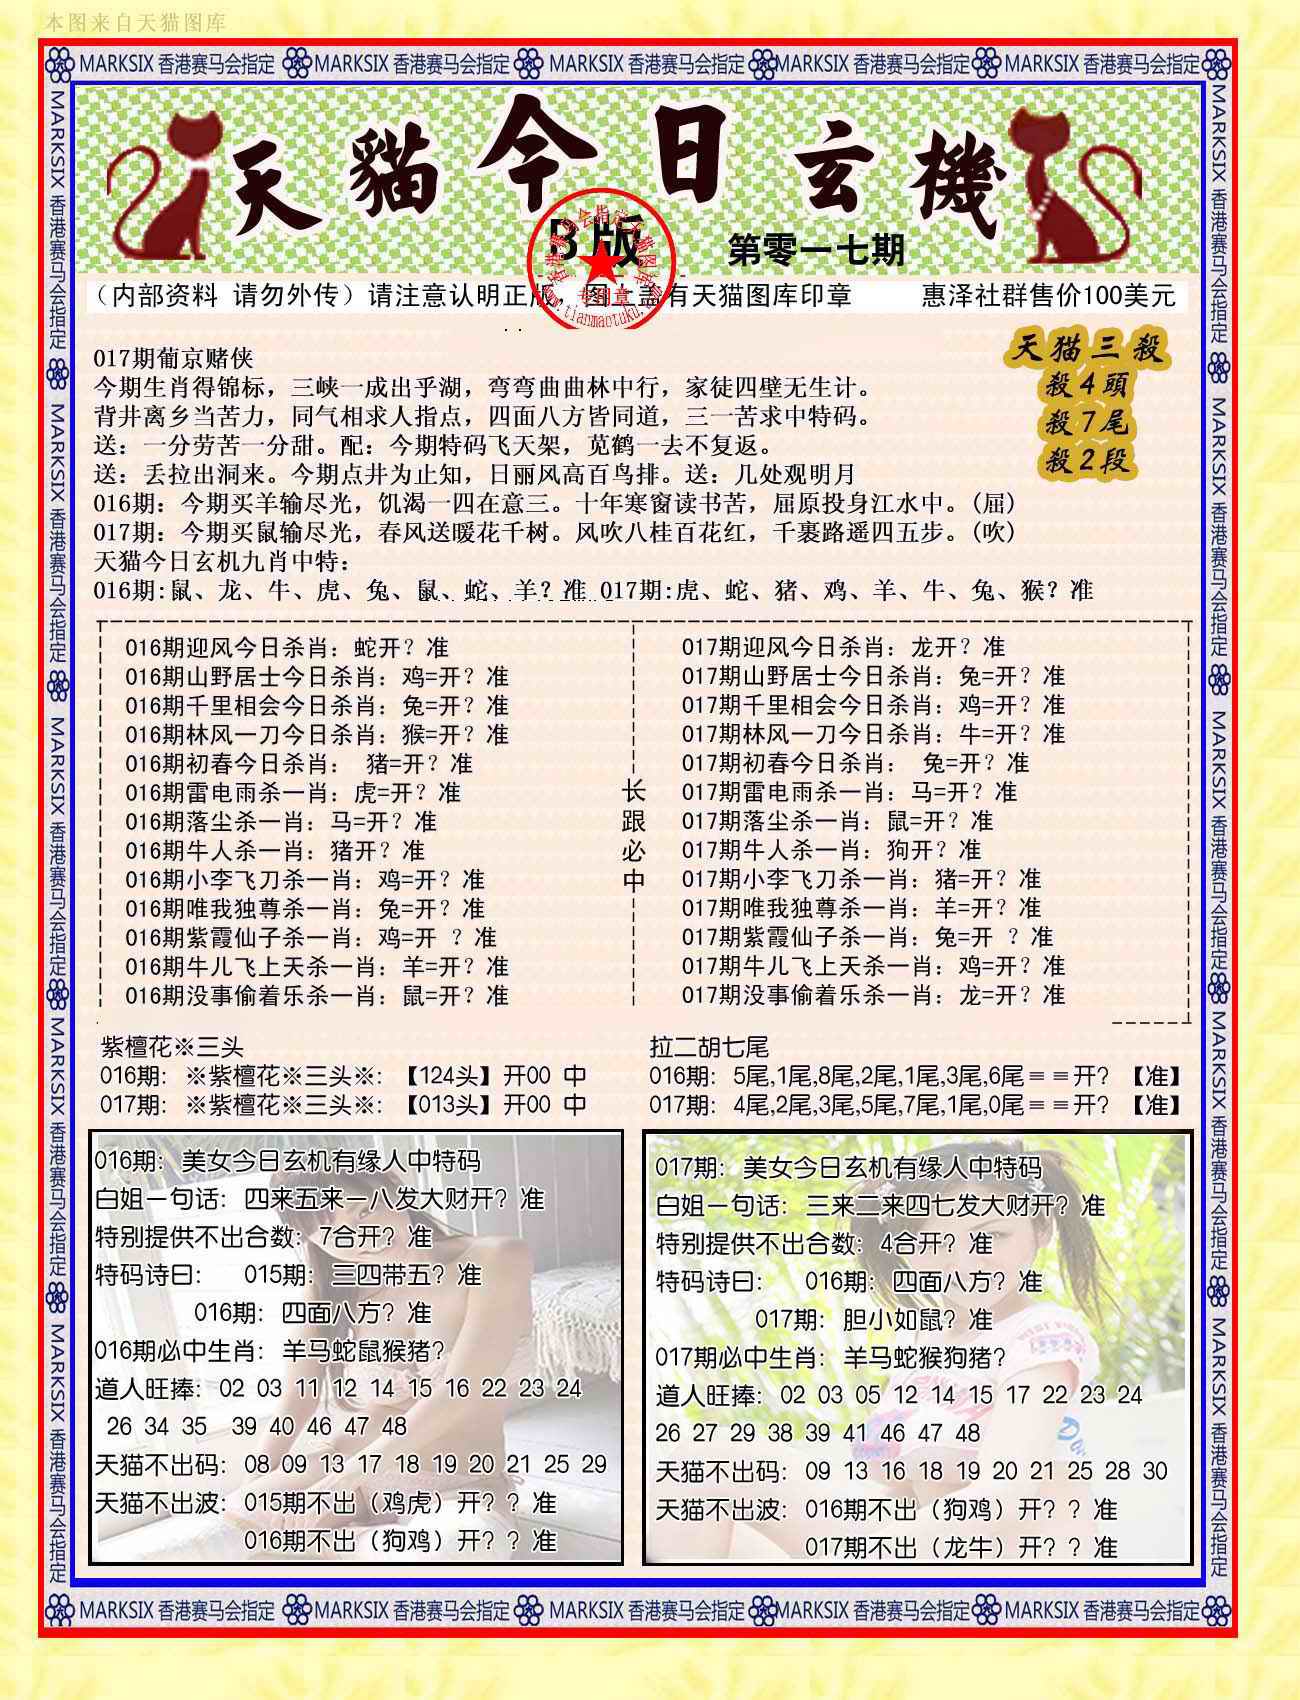 本图来自天猫图库
MARKSIX 香港赛马会指定 MARKSIX 香港赛马会指定 MARKSIX 香港赛马会指定 MARKSIX 香港赛马会指定 MARKSIX 香港赛马会指定
MARKSIX 香港赛马会指定 MARKSIX 香港赛马会指定 MARKSIX 香港赛马会指定 MARKSIX 香港赛马会指定 MARKSIX 香港赛马会指定
MARKSIX 香港赛马会指定 MARKSIX 香港赛马会指定 MARKSIX 香港赛马会指定 MARKSIX 香港赛马会指定 MARKSIX 香港赛马会指定
天貓今日玄機
B版
第零一七期
专用章
www.tianmaotuku.com
（内部资料 请勿外传）请注意认明正版，图上盖有天猫图库印章 惠泽社群售价100美元
天猫三殺
殺4頭
殺7尾
殺2段
017期葡京赌侠
今期生肖得锦标，三峡一成出乎湖，弯弯曲曲林中行，家徒四壁无生计。
背井离乡当苦力，同气相求人指点，四面八方皆同道，三一苦求中特码。
送：一分劳苦一分甜。配：今期特码飞天架，苋鹤一去不复返。
送：丢拉出洞来。今期点井为止知，日丽风高百鸟排。送：几处观明月
016期：今期买羊输尽光，饥渴一四在意三。十年寒窗读书苦，屈原投身江水中。(屈)
017期：今期买鼠输尽光，春风送暖花千树。风吹八桂百花红，千裹路遥四五步。(吹)
天猫今日玄机九肖中特：
016期:鼠、龙、牛、虎、兔、鼠、蛇、羊？准 017期:虎、蛇、猪、鸡、羊、牛、兔、猴？准
016期迎风今日杀肖：蛇开？准
016期山野居士今日杀肖：鸡=开？准
016期千里相会今日杀肖：兔=开？准
016期林风一刀今日杀肖：猴=开？准
016期初春今日杀肖： 猪=开？准
016期雷电雨杀一肖：虎=开？准
016期落尘杀一肖：马=开？准
016期牛人杀一肖：猪开？准
016期小李飞刀杀一肖：鸡=开？准
016期唯我独尊杀一肖：兔=开？准
016期紫霞仙子杀一肖：鸡=开 ？准
016期牛儿飞上天杀一肖：羊=开？准
016期没事偷着乐杀一肖：鼠=开？准
长跟必中
017期迎风今日杀肖：龙开？准
017期山野居士今日杀肖：兔=开？准
017期千里相会今日杀肖：鸡=开？准
017期林风一刀今日杀肖：牛=开？准
017期初春今日杀肖： 兔=开？准
017期雷电雨杀一肖：马=开？准
017期落尘杀一肖：鼠=开？准
017期牛人杀一肖：狗开？准
017期小李飞刀杀一肖：猪=开？准
017期唯我独尊杀一肖：羊=开？准
017期紫霞仙子杀一肖：兔=开 ？准
017期牛儿飞上天杀一肖：鸡=开？准
017期没事偷着乐杀一肖：龙=开？准
紫檀花※三头
016期：※紫檀花※三头※:【124头】开00 中
017期：※紫檀花※三头※:【013头】开00 中
拉二胡七尾
016期：5尾,1尾,8尾,2尾,1尾,3尾,6尾≡≡开？【准】
017期：4尾,2尾,3尾,5尾,7尾,1尾,0尾≡≡开？【准】
016期：美女今日玄机有缘人中特码
白姐一句话：四来五来一八发大财开？准
特别提供不出合数：7合开？准
特码诗曰： 015期：三四带五？准
016期：四面八方？准
016期必中生肖：羊马蛇鼠猴猪？
道人旺捧：02 03 11 12 14 15 16 22 23 24
26 34 35 39 40 46 47 48
天猫不出码：08 09 13 17 18 19 20 21 25 29
天猫不出波：015期不出（鸡虎）开？？准
016期不出（狗鸡）开？？准
017期：美女今日玄机有缘人中特码
白姐一句话：三来二来四七发大财开？准
特别提供不出合数：4合开？准
特码诗曰： 016期：四面八方？准
017期：胆小如鼠？准
017期必中生肖：羊马蛇猴狗猪？
道人旺捧：02 03 05 12 14 15 17 22 23 24
26 27 29 38 39 41 46 47 48
天猫不出码：09 13 16 18 19 20 21 25 28 30
天猫不出波：016期不出（狗鸡）开？？准
017期不出（龙牛）开？？准
MARKSIX 香港赛马会指定 MARKSIX 香港赛马会指定 MARKSIX 香港赛马会指定 MARKSIX 香港赛马会指定 MARKSIX 香港赛马会指定